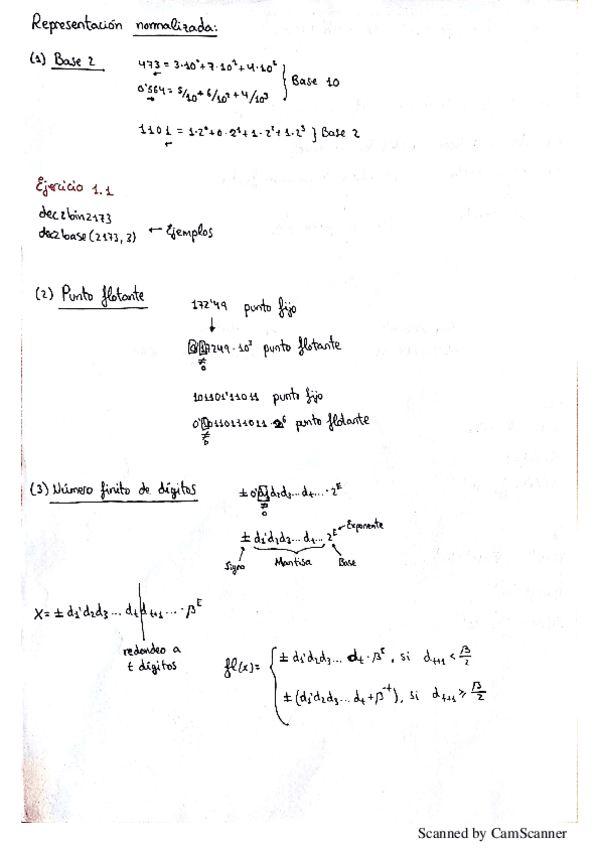 Representación normalizada:
(1) Base 2
473 = 3·10⁰ + 7·10¹ + 4·10²
0'564 = 5/10 + 6/10² + 4/10³
} Base 10
1101 = 1·2⁰ + 0·2¹ + 1·2² + 1·2³ } Base 2
Ejercicio 1.1
dec2bin2173
dec2base(2173, 3) ← Ejemplos
(2) Punto flotante
172'49 punto fijo
↓
0'17249·10³ punto flotante
≠
0
101101'11011 punto fijo
0'10110111011·2⁶ punto flotante
≠
0
(3) Número finito de dígitos
± 0'd₁d₂d₃...dₜ...·2ᴱ
≠
0
± d₁'d₂d₃...dₜ... 2ᴱ ← Exponente
Signo Mantisa Base
X = ± d₁'d₂d₃... dₜ dₜ₊₁ ...·βᴱ
redondeo a
t dígitos
fl(x) = { ± d₁'d₂d₃... dₜ·βᴱ, si dₜ₊₁ < β/2
± (d₁'d₂d₃... dₜ + β⁻ᵗ), si dₜ₊₁ ≥ β/2
Scanned by CamScanner